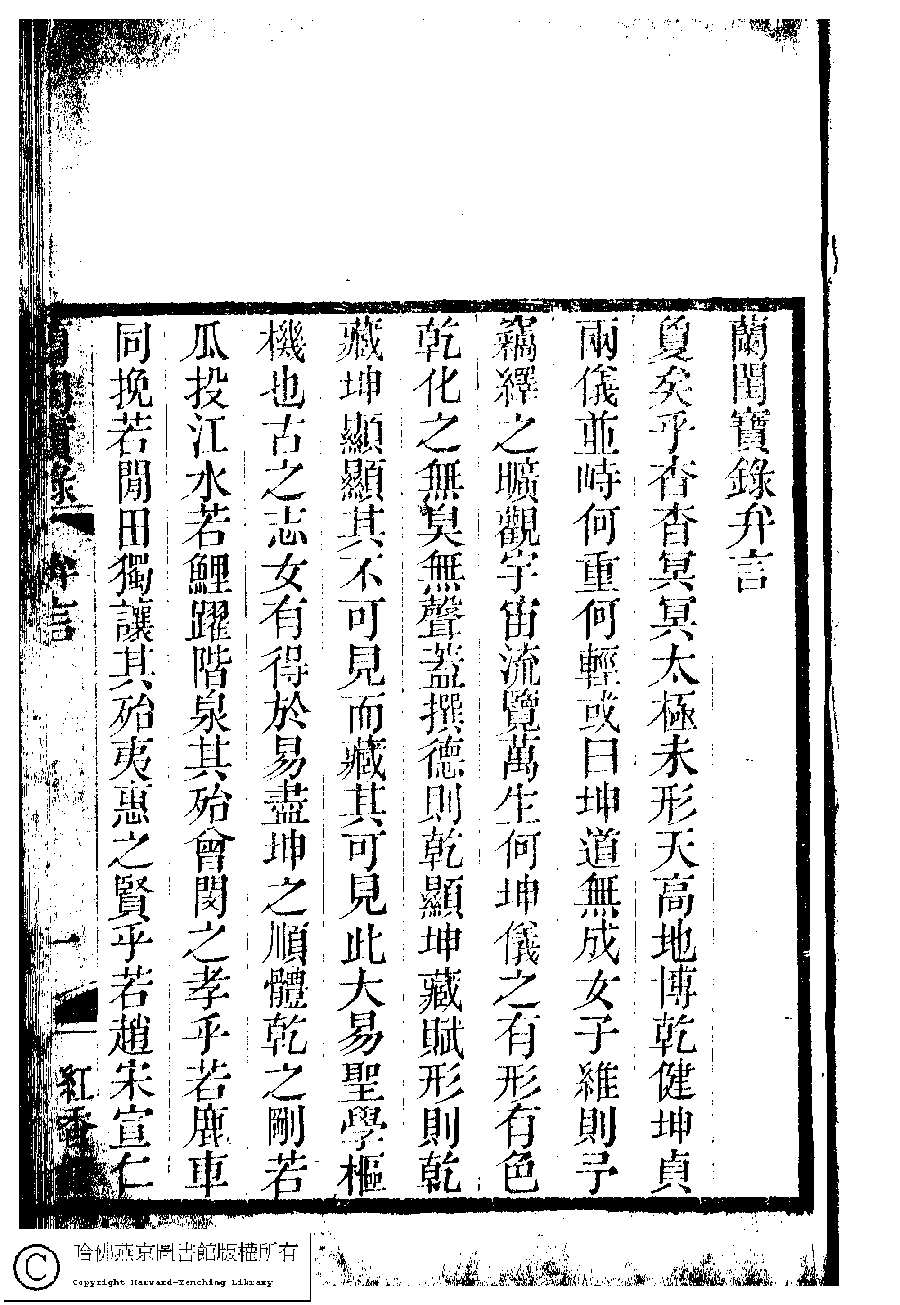 蘭閨寶錄弁言
敻矣乎杳杳冥冥太極未形天高地博乾健坤貞
兩儀並峙何重何輕或曰坤道無成女子維則予
竊繹之曠觀宇宙流覽萬生何坤儀之有形有色
乾化之無臭無聲蓋撰德則乾顯坤藏賦形則乾
藏坤顯顯其不可見而藏其可見此大易聖學樞
機也古之志女有得於易盡坤之順體乾之剛若
瓜投江水若鯉躍階泉其殆曾閔之孝乎若鹿車
同挽若閒田獨讓其殆夷惠之賢乎若趙宋宣仁
蘭閨寶錄
弁言
一
紅香
哈佛燕京圖書館版權所有
Copyright Harvard-Yenching Library